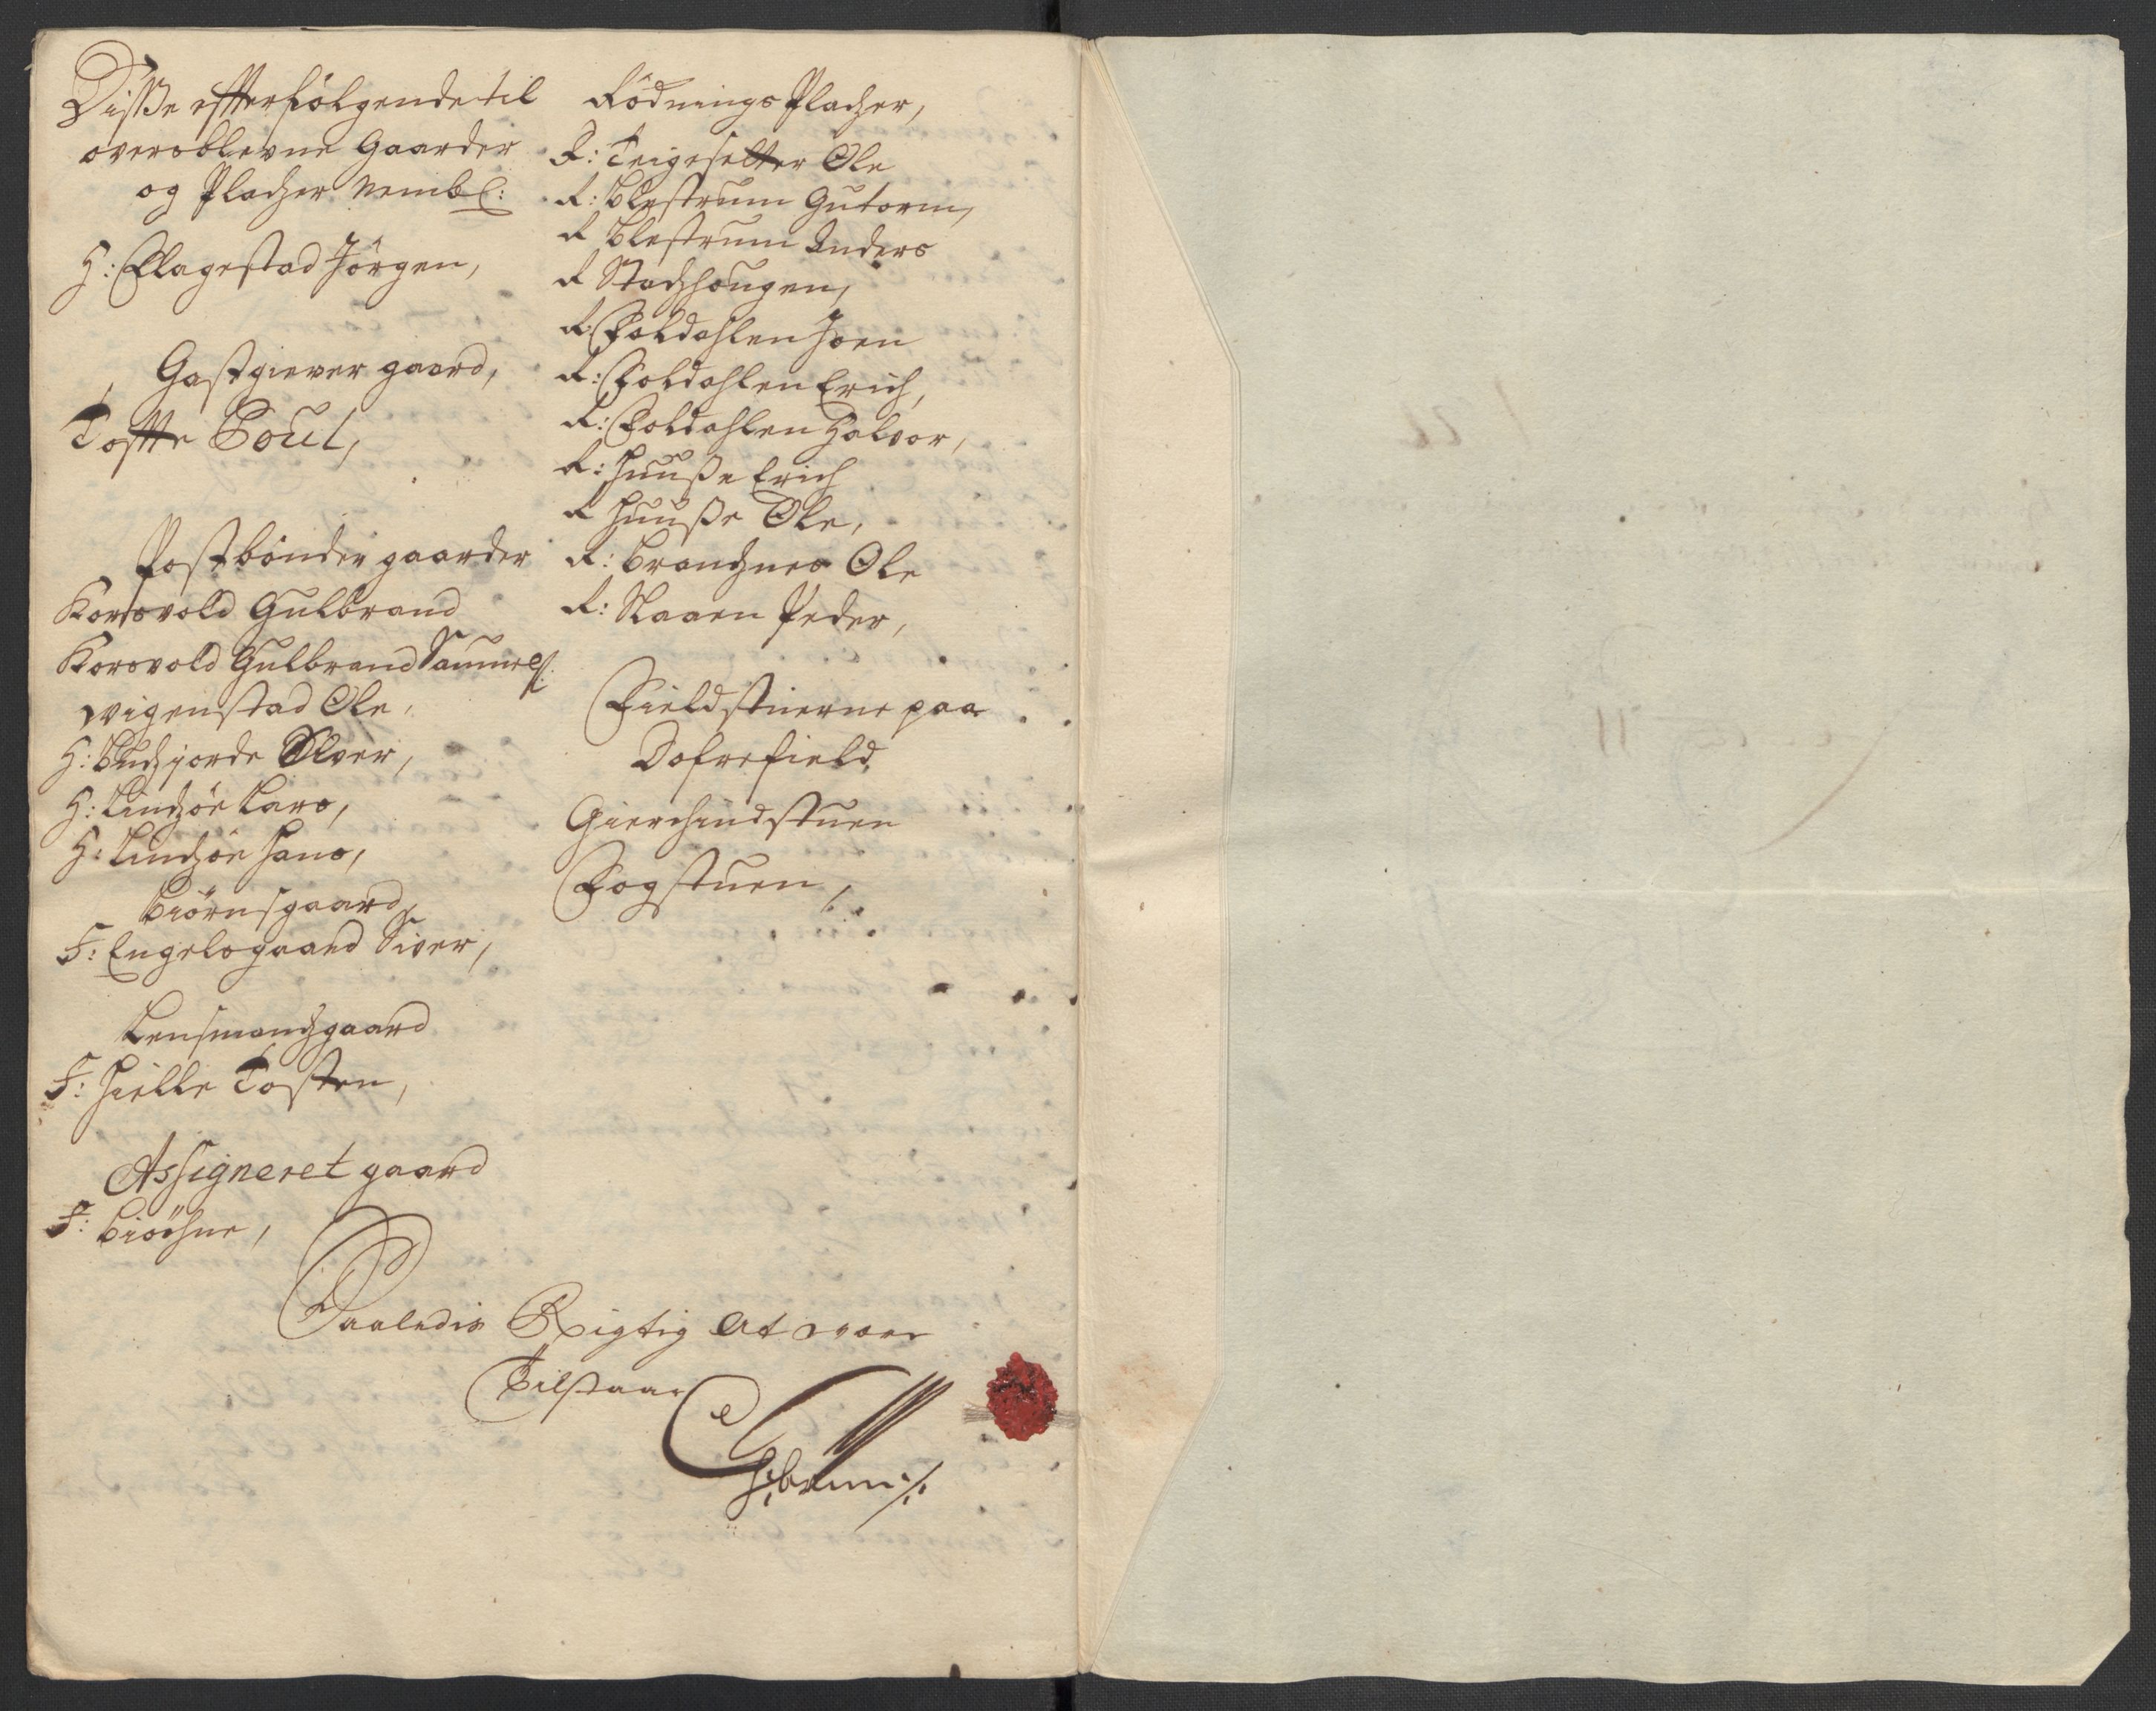 Disse efterfølgende til
overs blevne Gaarder
og Pladzer Nembl:
H: Flagestad Jörgen,
Gastgiever gaard,
Toftte Poul,
Postbönder gaarder
Korsvold Gulbrand
Korsvold Gulbrand Samuel:
Wigenstad Ole,
H: Budzjorde Siver,
H: Lindsöe Lars,
H: Lindsöe Hans,
Biörnsgaard
F: Engelsgaard Siver,
Lensmandsgaard
F: Hielle Tosten,
Assigneret gaard
F: Biööhne,
Rödnings Pladzer,
R: Teigesetter Ole
R: Blestrum Gutorm,
R Blestrum Anders
R Stadshougen,
R: Foldahlen Joen
R: Foldahlen Erich,
R: Foldahlen Halvor,
R: Huuse Erich
R Huuse Ole,
R: Brandznes Ole
R: Slaaen Peder,
Fieldstuerne paa
Dofrefield
Gierchindstuen
Fogstuen,
Saaledis Rigtig at være
Tilstaar